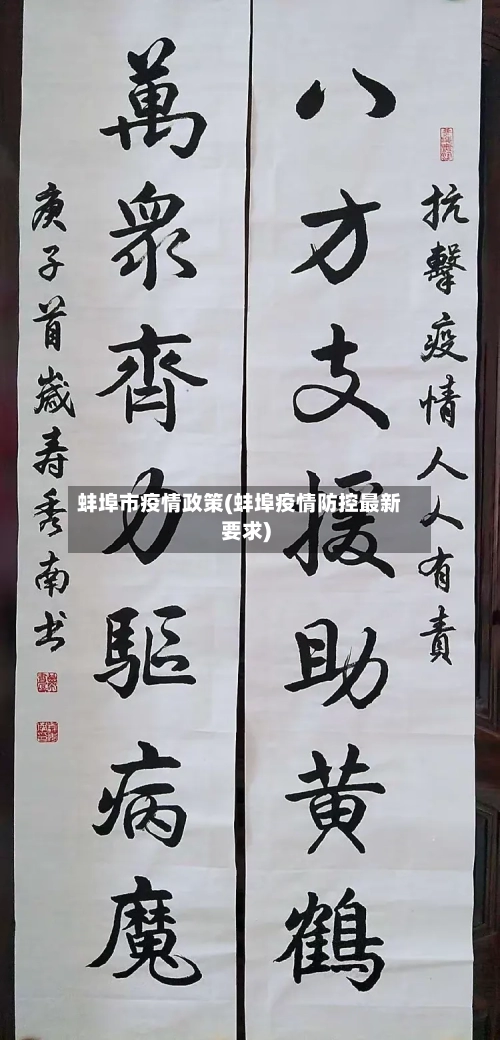 抗擊疫情人人有責
八方支援助黄鶴
萬眾齊力驅病魔
庚子首歲寿秀南书
蚌埠市疫情政策(蚌埠疫情防控最新
要求)